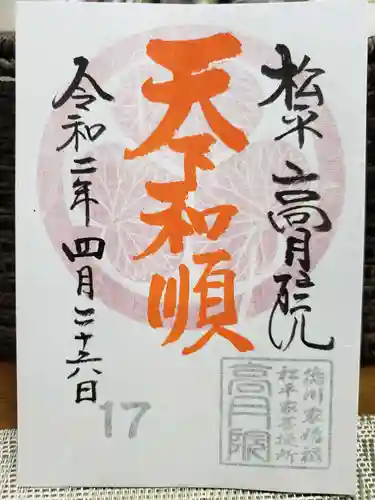 松平 高月院
天下和順
令和二年四月二十六日
17
徳川家
松平家菩提所
高月院